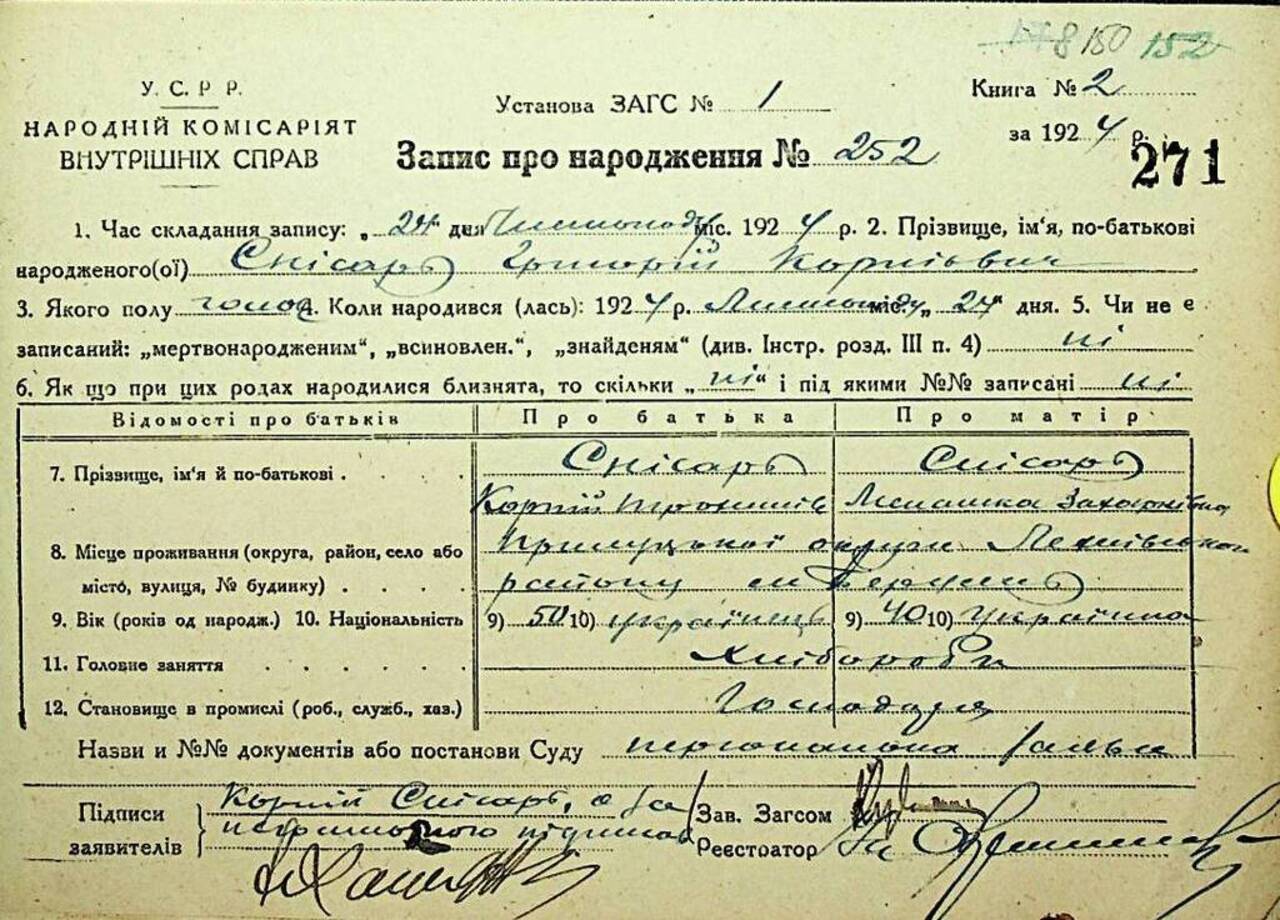 8 150 152
У. С. Р. Р.
НАРОДНІЙ КОМІСАРІЯТ
ВНУТРІШНІХ СПРАВ
Установа ЗАГС № 1
Книга № 2
за 1924 р.
Запис про народження № 252
271
1. Час складання запису: „24“ дня Листопаду міс. 1924 р. 2. Прізвище, ім‘я, по-батькові
народженого(ої) Снісарь Григорій Корнієвич
3. Якого полу чолов 4. Коли народився (лась): 1924 р. Листопаду міс. „24“ дня. 5. Чи не є
записаний: „мертвонародженим“, „всиновлен.“, „знайденям“ (див. Інстр. розд. III п. 4) ні
6. Як що при цих родах народилися близнята, то скільки „ні“ і під якими №№ записані ні
Відомості про батьків Про батька Про матір
7. Прізвище, ім‘я й по-батькові . . . Снісарь Снісарь
Корній Захаріївна
8. Місце проживання (округа, район, село або Прилуцької округи
місто, вулиця, № будинку) . . . . району м
9. Вік (років од народж.) 10. Національність 9) 50 10) українець 9) 40 10) українка
11. Головне заняття . . . . . Хлібороби
12. Становище в промислі (роб., служб., хаз.) Господарі
Назви и №№ документів або постанови Суду
Підписи
заявителів
Корній Снісарь, а за
підписав
Зав. Загсом
Реєстратор